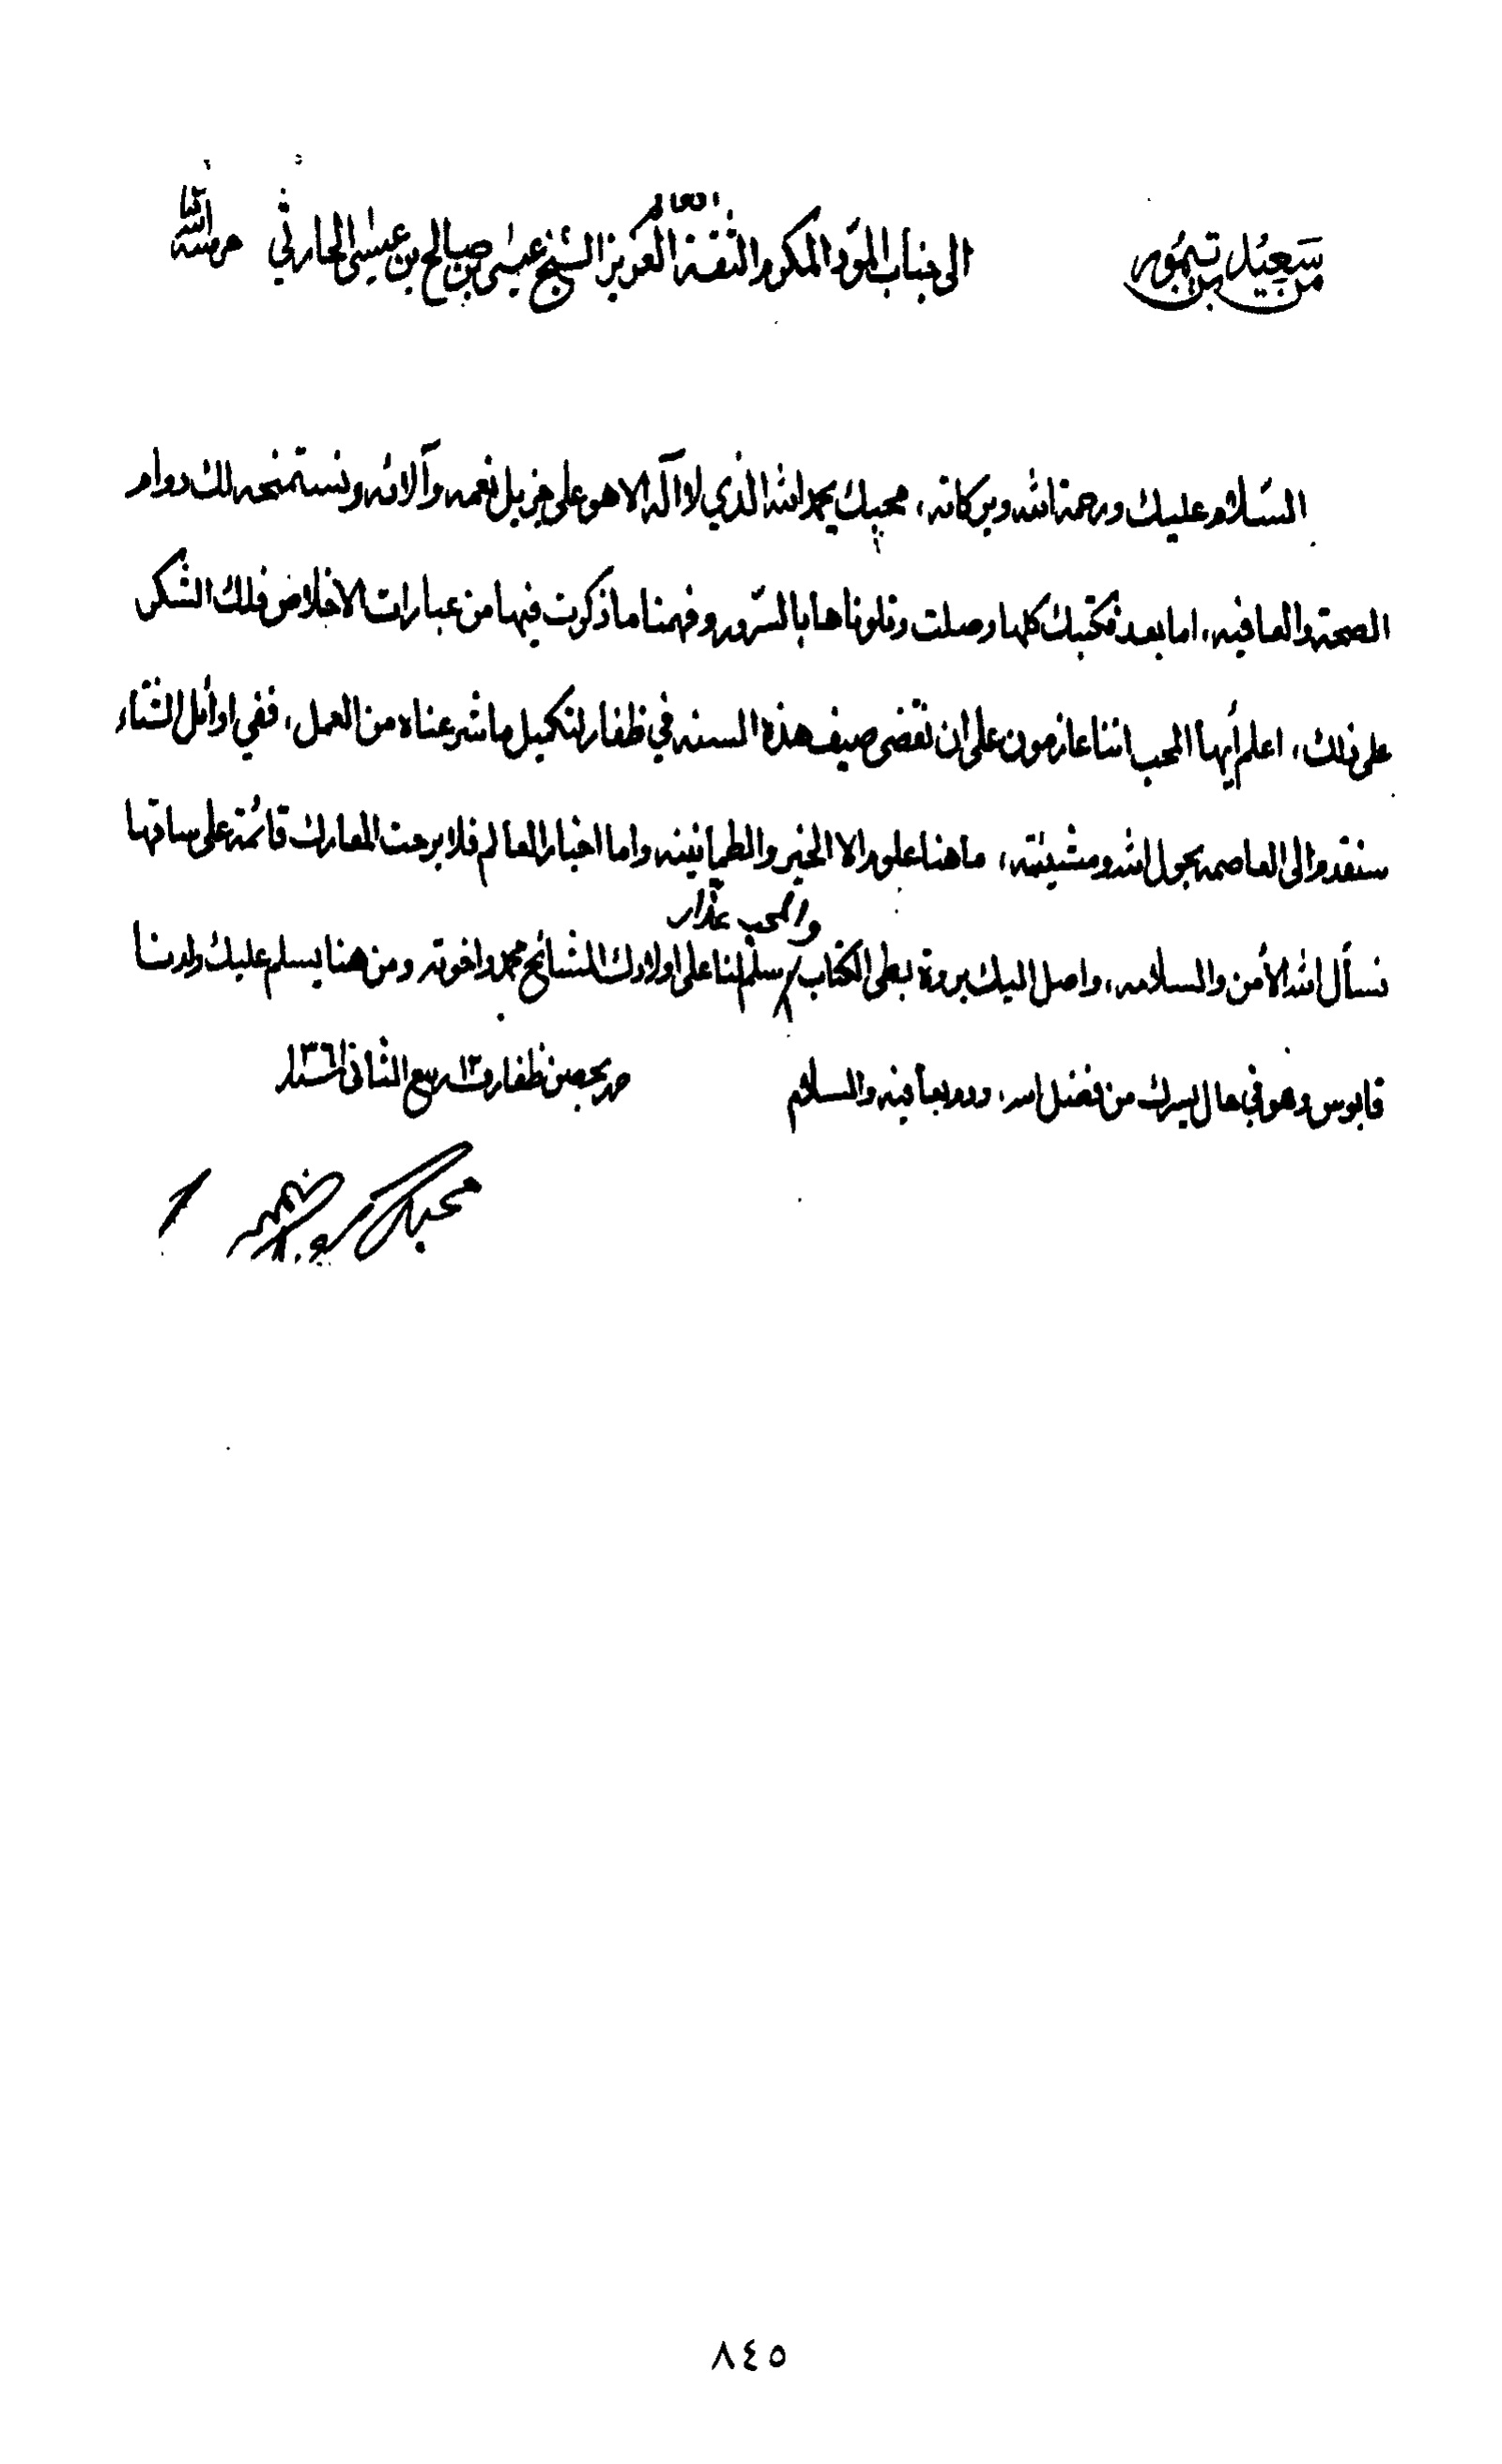 من سعيد بن تيمور
الى جناب المود المكرم الثقة العزيز الشيخ عيسى بن صالح بن عيسى الحارثي حرسه الله
السلام عليك ورحمة الله وبركاته، محبك يحمد الله الذي لا اله الا هو على جزيل نعمه وآلائه ونستمنحه لك دوام
الصحة والعافيه، اما بعد فكتبك كلها وصلت وتلوناها بالسرور وفهمنا ما ذكرت فيها من عبارات الاخلاص فلك الشكر
على ذلك، اعلم أيها المحب اننا عازمون على ان نقضى صيف هذه السنه في ظفار لتكميل ما شرعناه من العمل، ففي اوائل الشتاء
سنقدم الى العاصمه بحول الله ومشيئته، ما هنا علوم الا الخير والطمانينه واما اخبار العالم فلا برحت المعارك قائمة على ساقها
والمحب
نسأل الله الأمن والسلامه، واصل اليك بروة بطى الكتاب سلم لنا على اولادك المشائخ محمد واخوته ومن هنا يسلم عليك ولدنا
قابوس وهو في حال يسرك من فضل الله، ودم بعافيه والسلام
حرر بحصن ظفار ربيع الثاني
محبك
٨٤٥